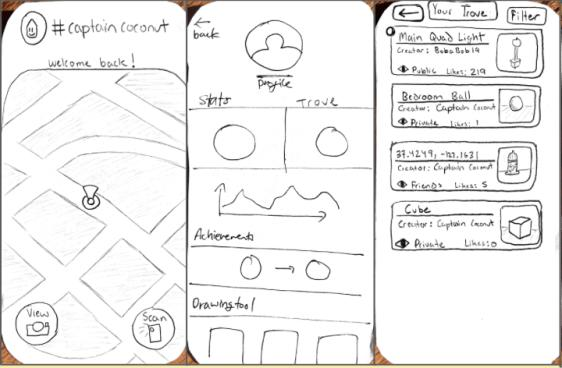 #captain coconut
welcome back!
View
Scan
back
Profile
Stats
Trove
Achievements
Drawing tool
Your Trove
Filter
Main Quad Light
Creator: BobaBob19
Public Likes: 219
Bedroom Ball
Creator: Captain Coconut
Private Likes: 1
Creator: Captain Coconut
Friends Likes: 5
Cube
Creator: Captain Coconut
Private Likes: 0